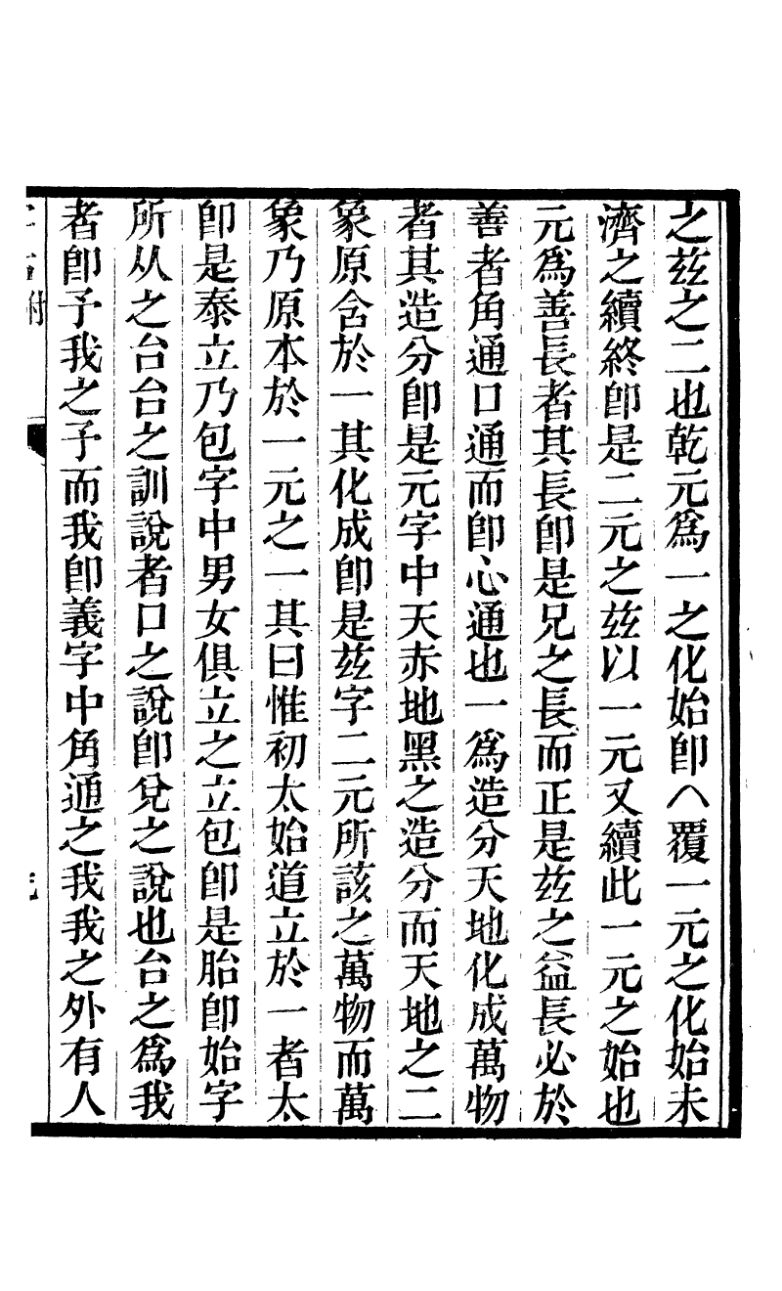 之玆之二也乾元爲一之化始卽𠆢覆一元之化始未
濟之續終卽是二元之玆以一元又續此一元之始也
元爲善長者其長卽是兄之長而正是玆之益長必於
善者角通口通而卽心通也一爲造分天地化成萬物
者其造分卽是元字中天赤地黑之造分而天地之二
象原含於一其化成卽是玆字二元所該之萬物而萬
象乃原本於一元之一其曰惟初太始道立於一者太
卽是泰立乃包字中男女俱立之立包卽是胎卽始字
所从之台台之訓說者口之說卽兌之說也台之爲我
者卽予我之予而我卽義字中角通之我我之外有人